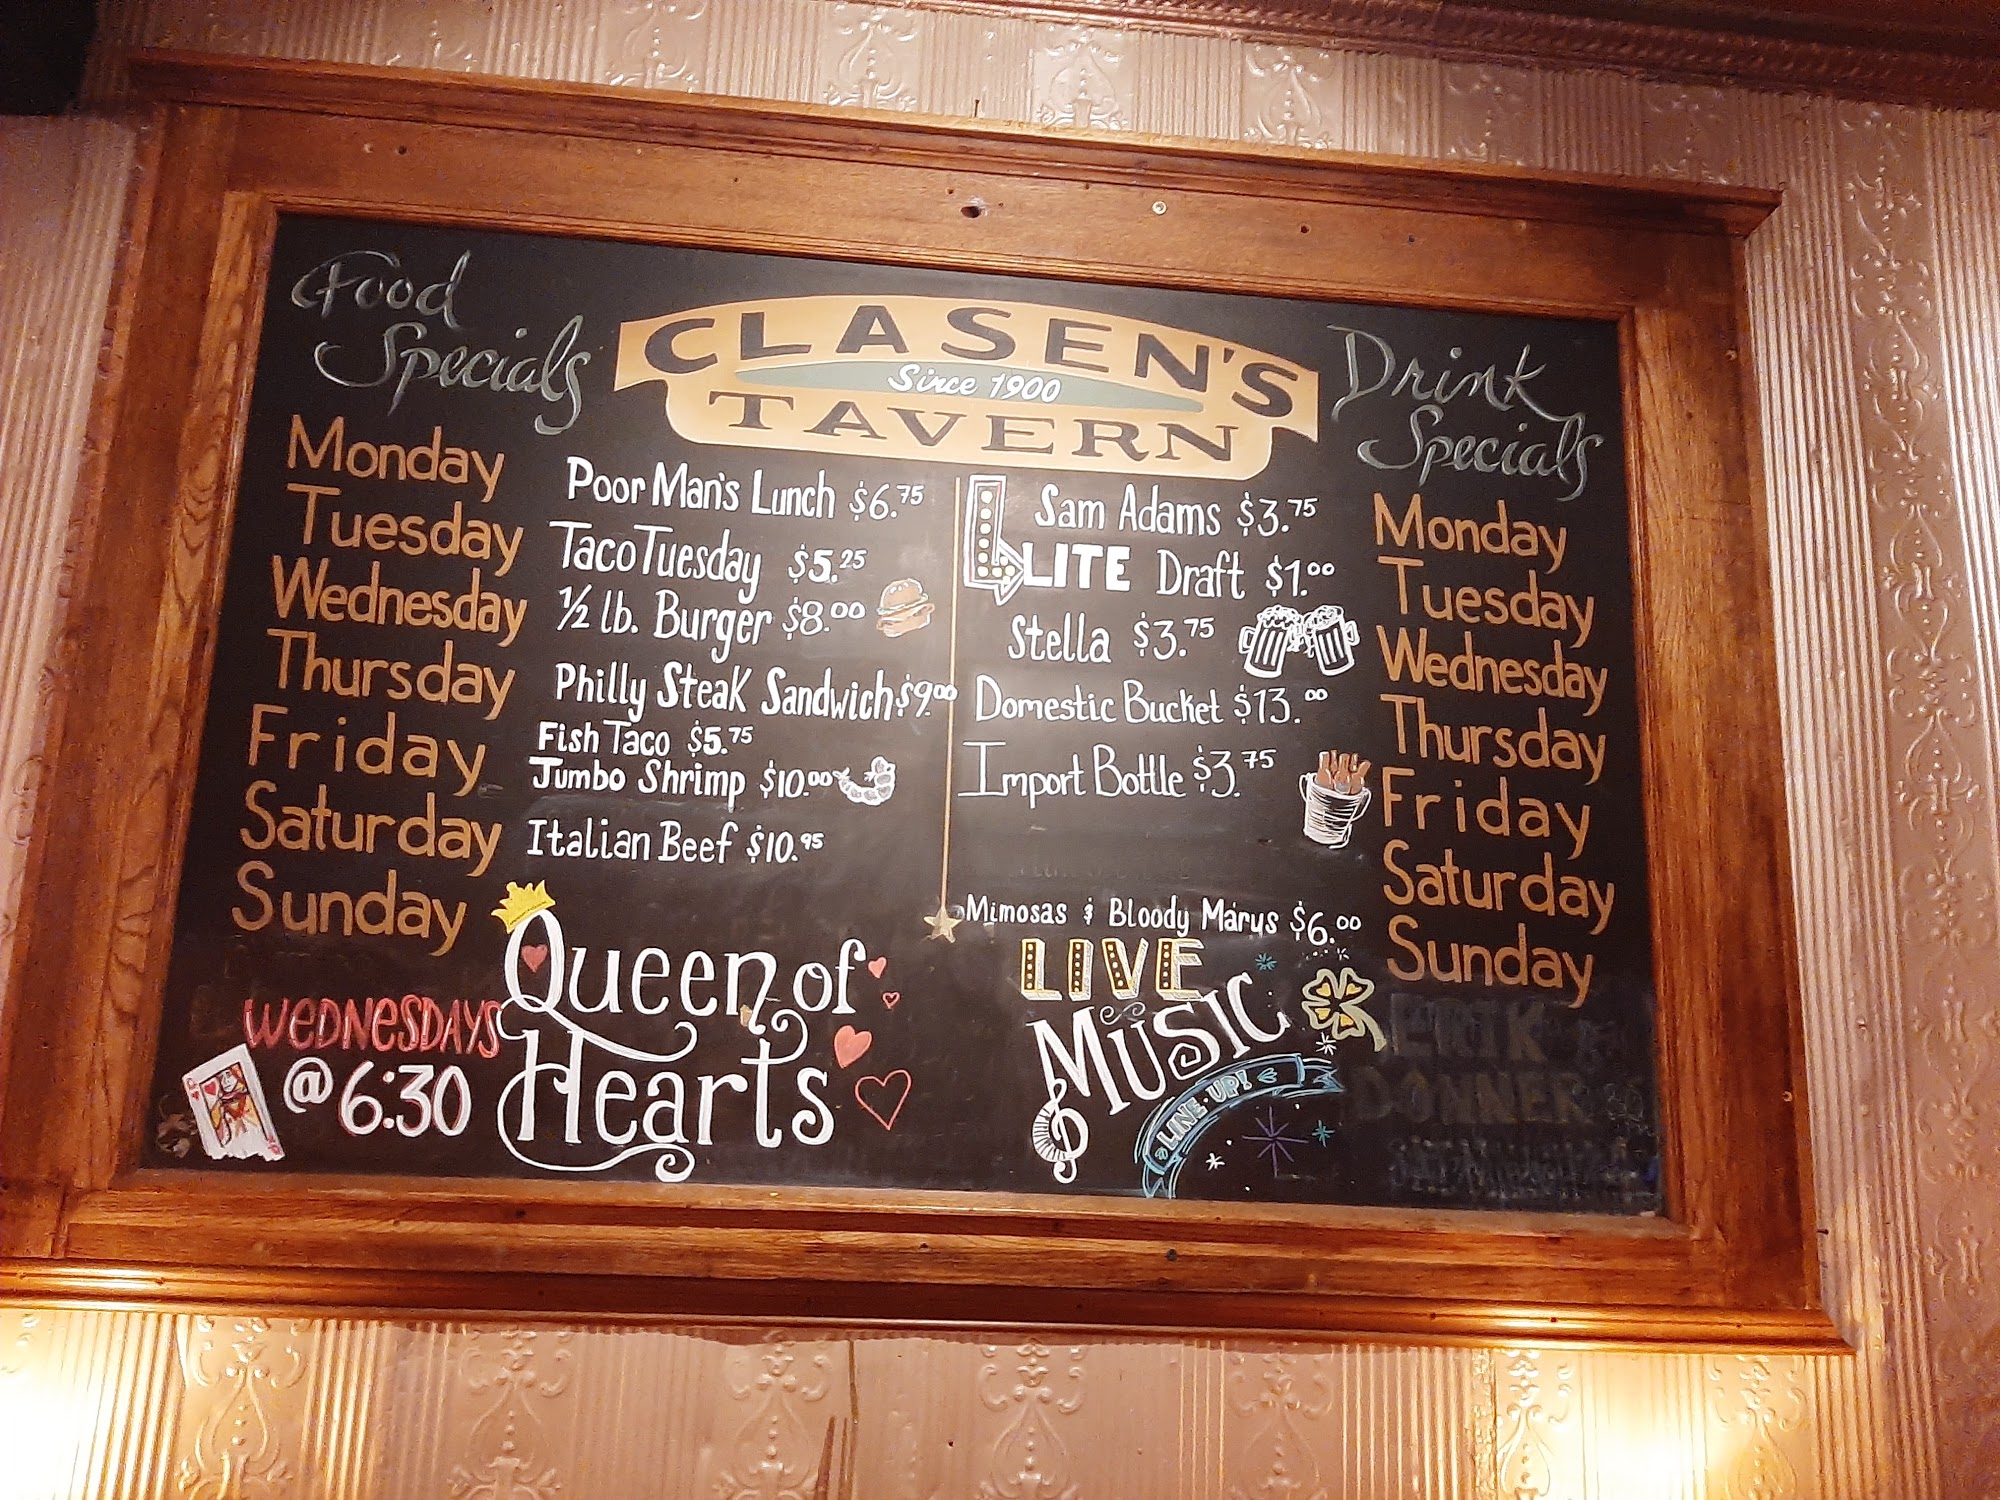 Food
Specials
CLASEN'S
Since 1900
TAVERN
Drink
Specials
Monday
Tuesday
Wednesday
Thursday
Friday
Saturday
Sunday
Poor Man's Lunch $6.75
Taco Tuesday $5.25
1/2 lb. Burger $8.00
Philly Steak Sandwich $9.00
Fish Taco $5.75
Jumbo Shrimp $10.00
Italian Beef $10.95
Sam Adams $3.75
LITE Draft $1.00
Stella $3.75
Domestic Bucket $13.00
Import Bottle $3.75
Mimosas & Bloody Marys $6.00
Monday
Tuesday
Wednesday
Thursday
Friday
Saturday
Sunday
WEDNESDAYS
@ 6:30
Queen of
Hearts
LIVE
MUSIC
LINE-UP!
ERIK
DONNER